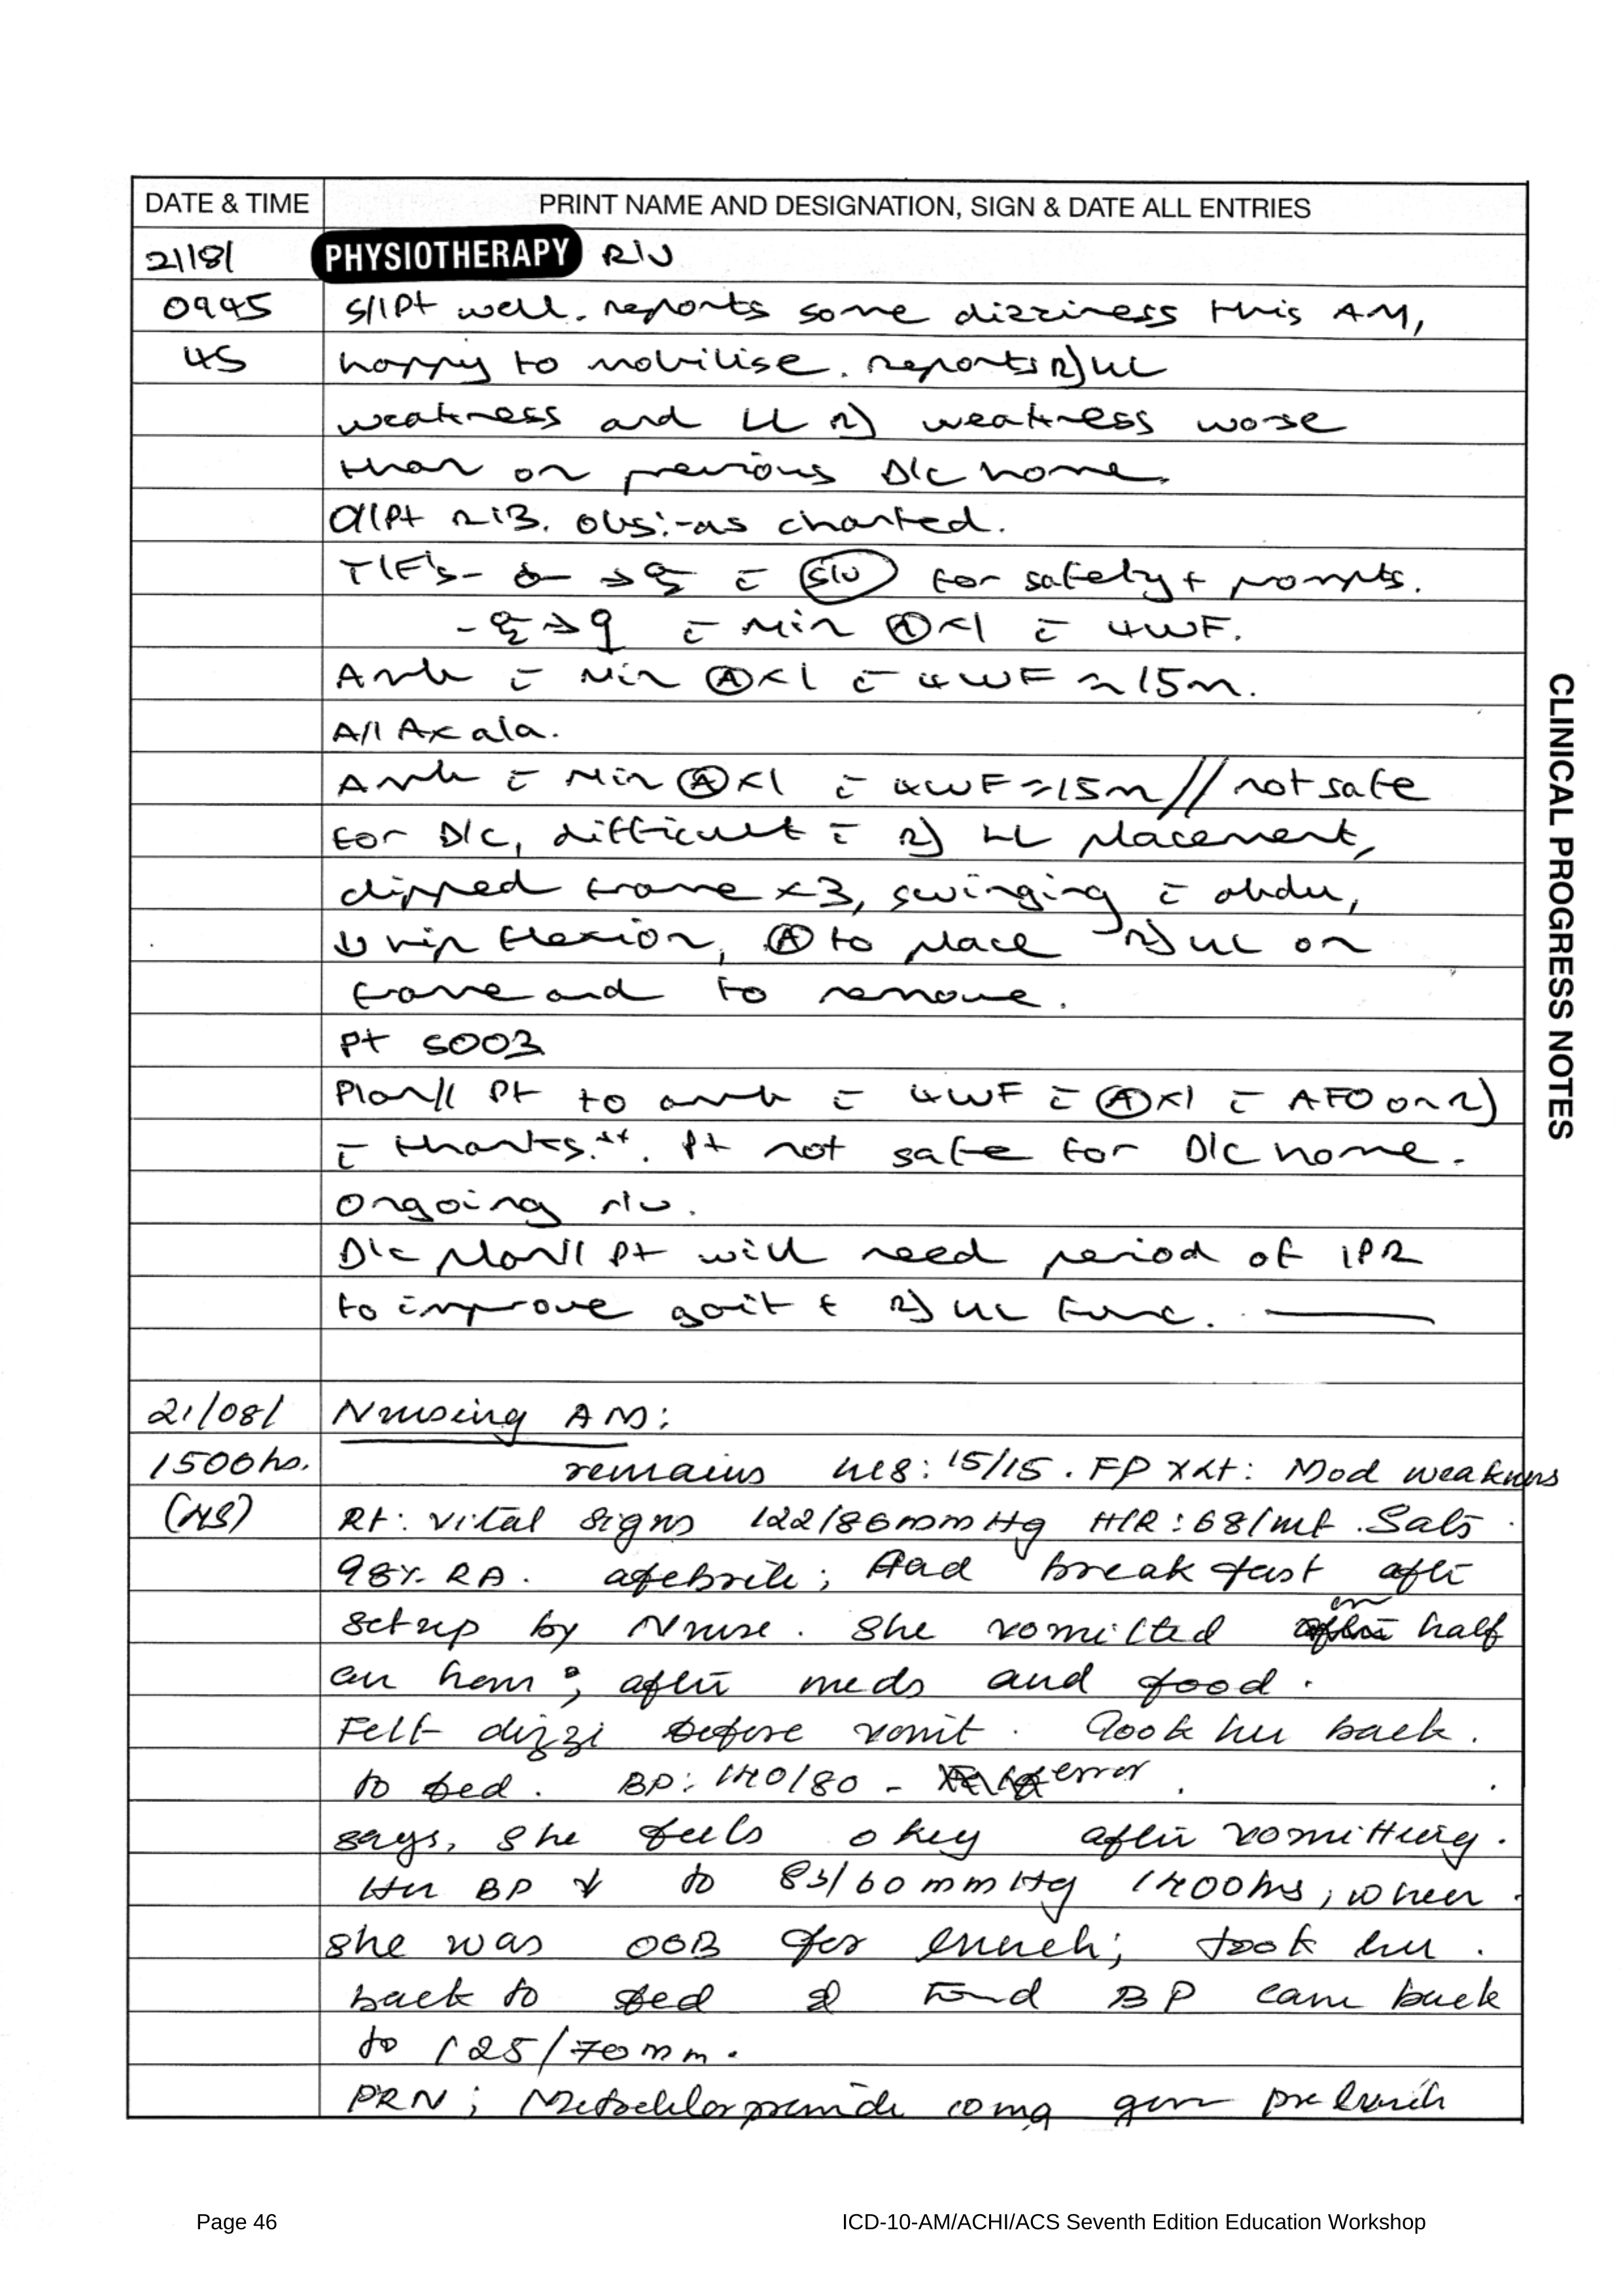 DATE & TIME PRINT NAME AND DESIGNATION, SIGN & DATE ALL ENTRIES
21/8/ PHYSIOTHERAPY R/V
0945 S// Pt well. reports some dizziness this AM,
45 happy to mobilise. reports R) UL
weakness and LL R) weakness worse
than on previous D/c home.
O// Pt RIB. obs:- as charted.
T/F's - → c̄ S/V for safety + prompts.
- → c̄ Min Ⓐ x1 c̄ 4WF.
Amb c̄ Min Ⓐ x1 c̄ 4WF ≈ 15m.
A// Ax ala.
Amb c̄ Min Ⓐ x1 c̄ 4WF ≈ 15m // not safe
for D/c, difficult c̄ R) LL placement,
clipped frame x3, swinging c̄ abdu,
↓ hip flexion, Ⓐ to place R) UL on
frame and to remove.
Pt SOOB
Plan// Pt to amb c̄ 4WF c̄ Ⓐ x1 c̄ AFO on R)
c̄ thanks.**. Pt not safe for D/c home.
Ongoing r/v.
D/c Plan// Pt will need period of IPR
to improve gait & R) UL func.
21/08/ Nursing AM:
1500hs. remains : 15/15. FP x Lt: Mod weakness
Rt: vital signs 122/86mmHg H/R: 68/mt. Sats
98% RA. afebrile; Had breakfast after
setup by Nurse. She vomited in half
an hour; after meds and food.
Felt dizzi before vomit. Took her back
to bed. BP: 140/80 - error.
says, she feels okey after vomitting.
Her BP ↓ to 83/60mmHg 1400hrs, when
she was OOB for lunch; took her
back to bed & BP came back
to 125/70mm.
PRN; Metochlorpramide 10mg given prelunch
CLINICAL PROGRESS NOTES
Page 46 ICD-10-AM/ACHI/ACS Seventh Edition Education Workshop